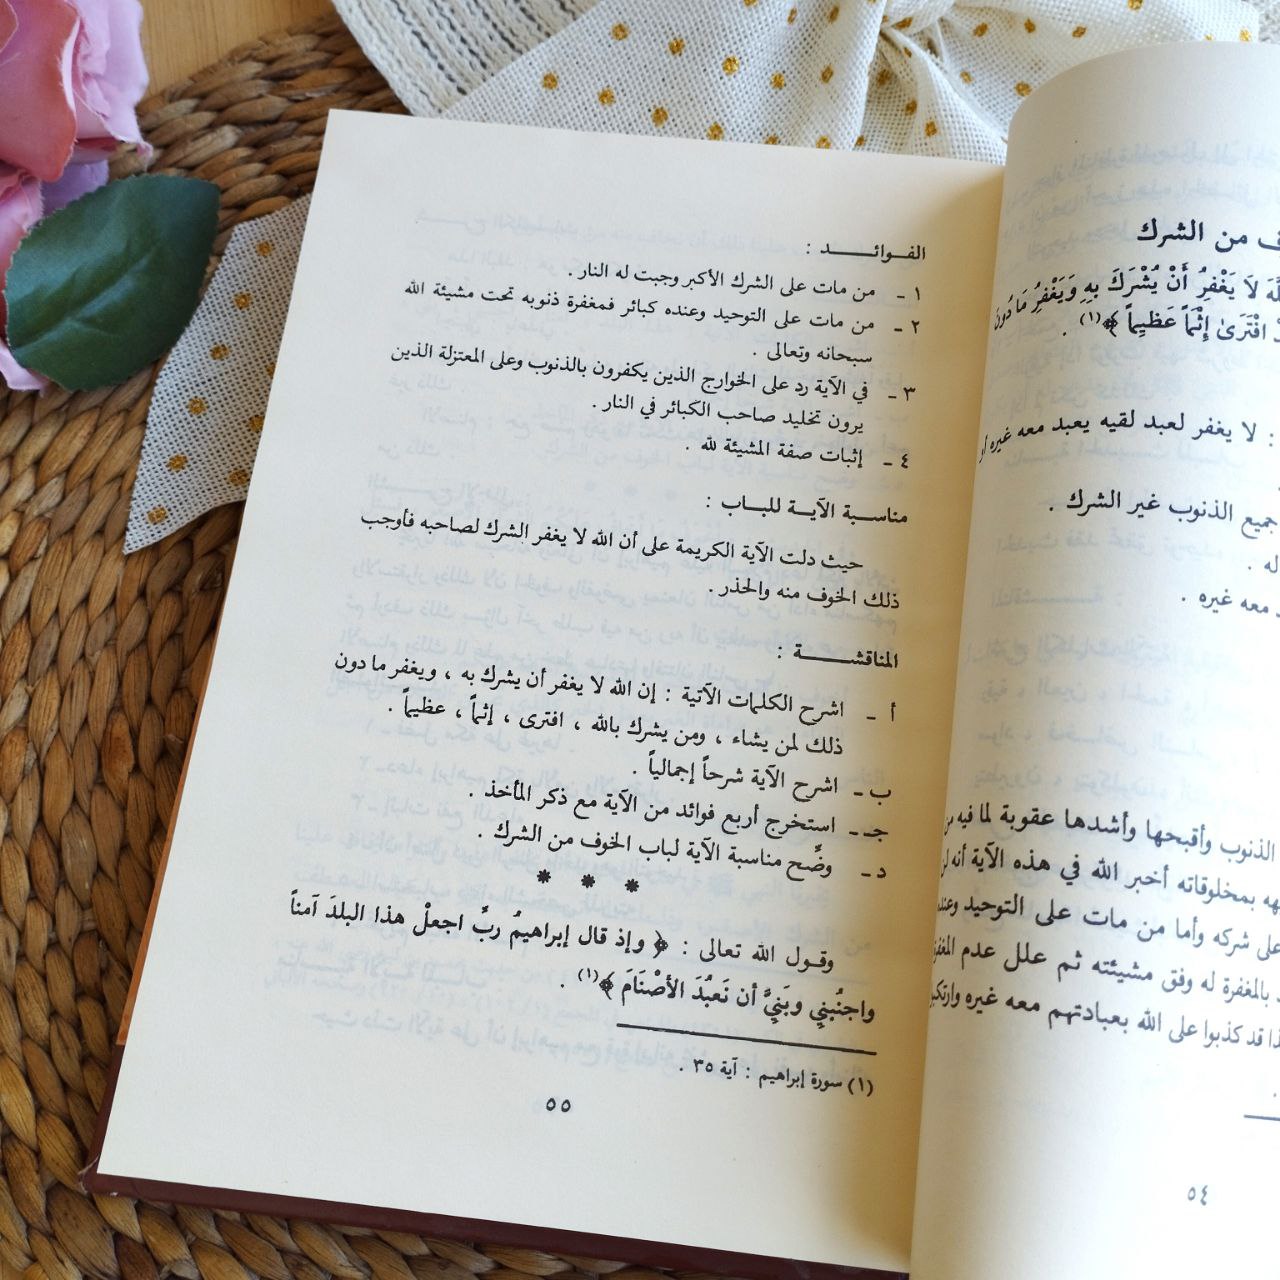 ف من الشرك
لَا يَغْفِرُ أَنْ يُشْرَكَ بِهِ وَيَغْفِرُ مَا دُونَ
افْتَرَىٰ إِثْمَاً عَظِيماً ﴾(١) .
: لا يغفر لعبد لقيه يعبد معه غيره
جميع الذنوب غير الشرك .
له .
معه غيره .
الذنوب وأقبحها وأشدها عقوبة لما فيه من
بمخلوقاته أخبر الله في هذه الآية أنه لن
على شركه وأما من مات على التوحيد وعنده
بالمغفرة له وفق مشيئته ثم علل عدم المغفرة
قد كذبوا على الله بعبادتهم معه غيره وارتكبوا
٥٤
الفـوائـــد :
١ ـ من مات على الشرك الأكبر وجبت له النار .
٢ ـ من مات على التوحيد وعنده كبائر فمغفرة ذنوبه تحت مشيئة الله
سبحانه وتعالى .
٣ ـ في الآية رد على الخوارج الذين يكفرون بالذنوب وعلى المعتزلة الذين
يرون تخليد صاحب الكبائر في النار .
٤ ـ إثبات صفة المشيئة لله .
مناسـبة الآيـة للبـاب :
حيث دلت الآية الكريمة على أن الله لا يغفر الشرك لصاحبه فأوجب
ذلك الخوف منه والحذر .
المناقشـــــة :
أ ـ اشرح الكلمات الآتية : إن الله لا يغفر أن يشرك به ، ويغفر ما دون
ذلك لمن يشاء ، ومن يشرك بالله ، افترى ، إثماً ، عظيماً .
ب ـ اشرح الآية شرحاً إجمالياً .
جـ ـ استخرج أربع فوائد من الآية مع ذكر المأخذ .
د ـ وضّح مناسبة الآية لباب الخوف من الشرك .
* * *
وقـول الله تعالى : ﴿ وإذ قال إبراهيمُ ربِّ اجعلْ هذا البلدَ آمناً
واجنُبنِي وبَنِيَّ أن نَعبُدَ الأصْنَامَ ﴾(١) .
(١) سورة إبراهيم : آية ٣٥ .
٥٥